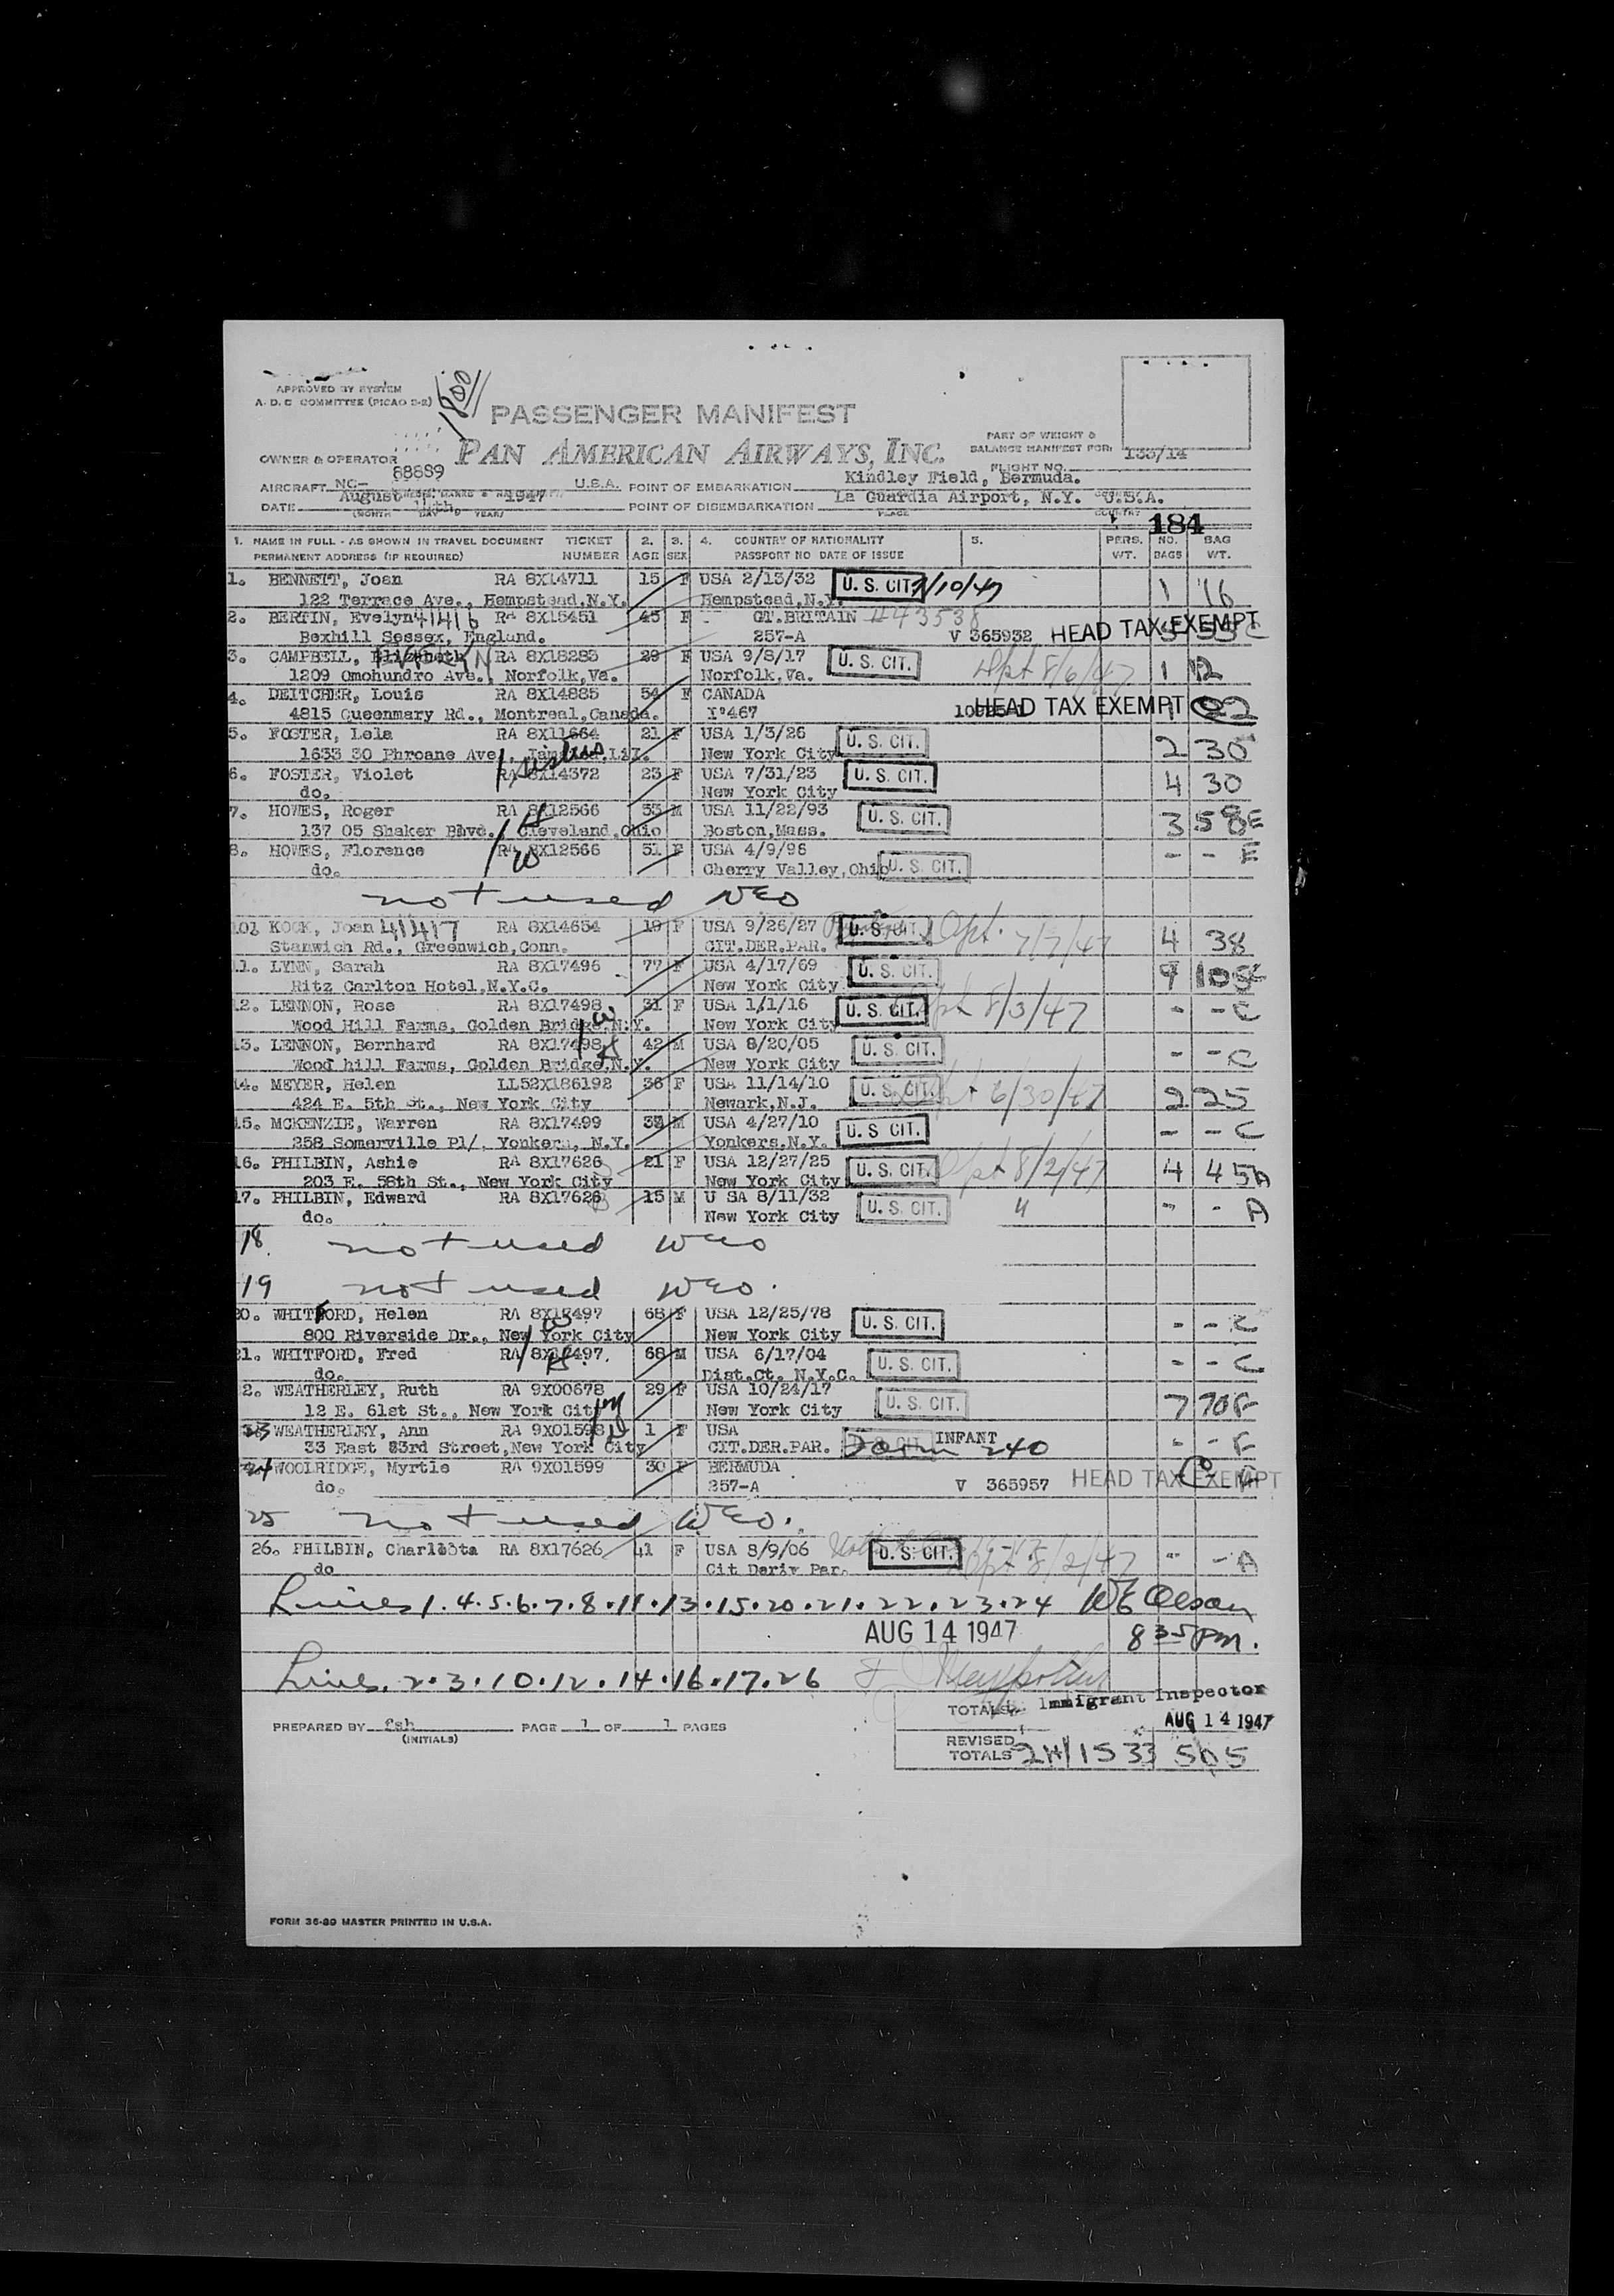 APPROVED BY SYSTEM
A. D. C COMMITTEE (PICAO 2-2)
PASSENGER MANIFEST
PAN AMERICAN AIRWAYS, INC.
PART OF WEIGHT &
BALANCE MANIFEST FOR: 133/14
FLIGHT NO.
OWNER & OPERATOR
AIRCRAFT NC- 88889 U.S.A. POINT OF EMBARKATION Kindley Field, Bermuda.
DATE August 1947 POINT OF DISEMBARKATION La Guardia Airport, N.Y. U.S.A.
(MONTH DAY YEAR) PLACE COUNTRY
184
1. NAME IN FULL - AS SHOWN IN TRAVEL DOCUMENT TICKET 2. 3. 4. COUNTRY OF NATIONALITY 5. PERS. NO. BAG
PERMANENT ADDRESS (IF REQUIRED) NUMBER AGE SEX PASSPORT NO DATE OF ISSUE WT. BAGS WT.
1. BENNETT, Joan RA 8X14711 15 F USA 2/13/32 U. S. CIT. 7/10/47 1 16
122 Terrace Ave., Hempstead,N.Y. Hempstead,N.Y.
2. BERTIN, Evelyn 41416 RA 8X15451 45 F GT.BRITAIN 443538
Bexhill Sessex, England. 257-A V 365932 HEAD TAX EXEMPT
3. CAMPBELL, Elizabeth RA 8X18283 29 F USA 9/8/17 U. S. CIT. Dpt 8/6/47 1 12
1209 Omohundro Ave., Norfolk,Va. Norfolk,Va.
4. DEITCHER, Louis RA 8X14885 54 F CANADA
4815 Queenmary Rd., Montreal,Canada. I°467 HEAD TAX EXEMPT 1 22
5. FOSTER, Lela RA 8X11664 21 F USA 1/3/26 U. S. CIT. 2 30
1633 30 Phroane Ave., Jamaica,L.I. New York City
6. FOSTER, Violet RA 8X14372 23 F USA 7/31/23 U. S. CIT. 4 30
do. sisters New York City
7. HOWES, Roger RA 8X12566 53 M USA 11/22/93 U. S. CIT. 3 58E
137 05 Shaker Blvd., Cleveland,Ohio H Boston,Mass.
8. HOWES, Florence RA 8X12566 51 F USA 4/9/96 U. S. CIT. - - E
do. W Cherry Valley,Ohio
not used WEO
10. KOCK, Joan 41417 RA 8X14654 19 F USA 9/26/27 U. S. CIT. Dpt. 7/7/47 4 38
Stanwich Rd., Greenwich,Conn. CIT.DER.PAR.
11. LYNN, Sarah RA 8X17496 77 F USA 4/17/69 U. S. CIT. 9 105C
Ritz Carlton Hotel,N.Y.C. New York City
12. LENNON, Rose RA 8X17498 31 F USA 1/1/16 U. S. CIT. Dpt 8/3/47 - - C
Wood Hill Farms, Golden Bridge,N.Y. W New York City
13. LENNON, Bernhard RA 8X17498 H 42 M USA 8/20/05 U. S. CIT. - - C
Wood hill Farms, Golden Bridge,N.Y. New York City
14. MEYER, Helen LL52X186192 36 F USA 11/14/10 U. S. CIT. Dpt 6/30/47 2 25
424 E. 5th St., New York City Newark,N.J.
15. MCKENZIE, Warren RA 8X17499 M USA 4/27/10 U. S CIT. - - C
258 Somerville Pl/. Yonkers, N.Y. Yonkers,N.Y.
16. PHILBIN, Ashie RA 8X17626 21 F USA 12/27/25 U. S. CIT. Dpt 8/2/47 4 45A
203 E. 58th St., New York City New York City
17. PHILBIN, Edward RA 8X17626 15 M U SA 8/11/32 U. S. CIT. " - - A
do. New York City
18. not used WEO
19 not used WEO.
20. WHITFORD, Helen RA 8X17497 68 F USA 12/25/78 U. S. CIT. - - C
800 Riverside Dr., New York City W New York City
21. WHITFORD, Fred RA 8X17497 68 M USA 6/17/04 U. S. CIT. - - C
do. H. Dist.Ct. N.Y.C.
2. WEATHERLEY, Ruth RA 9X00678 29 F USA 10/24/17 U. S. CIT. 7 70F
12 E. 61st St., New York City M New York City
23 WEATHERLEY, Ann RA 9X01598 D 1 F USA U. S. CIT. INFANT - - F
33 East 83rd Street,New York City CIT.DER.PAR. Form 240
24 WOOLRIDGE, Myrtle RA 9X01599 30 F BERMUDA
do. 257-A V 365957 HEAD TAX EXEMPT
25 not used WEO.
26. PHILBIN, Charlotta RA 8X17626 41 F USA 8/9/06 U. S. CIT. Dpt 8/2/47 - - A
do Cit Deriv Par.
Lines 1.4.5.6.7.8.11.13.15.20.21.22.23.24 WE Olson
AUG 14 1947 8 35 PM.
Lines. 2.3.10.12.14.16.17.26
TOTALS Immigrant Inspector
AUG 14 1947
PREPARED BY fsh PAGE 1 OF 1 PAGES
(INITIALS)
REVISED
TOTALS 21/1533 505
FORM 36-80 MASTER PRINTED IN U.S.A.